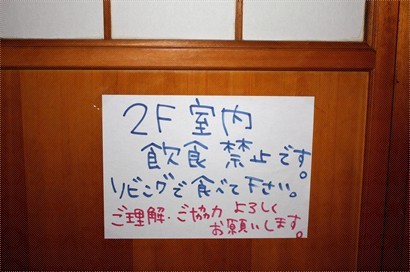 2F 室内
飲食 禁止です。
リビングで食べて下さい。
ご理解・ご協力 よろしく
お願いします。